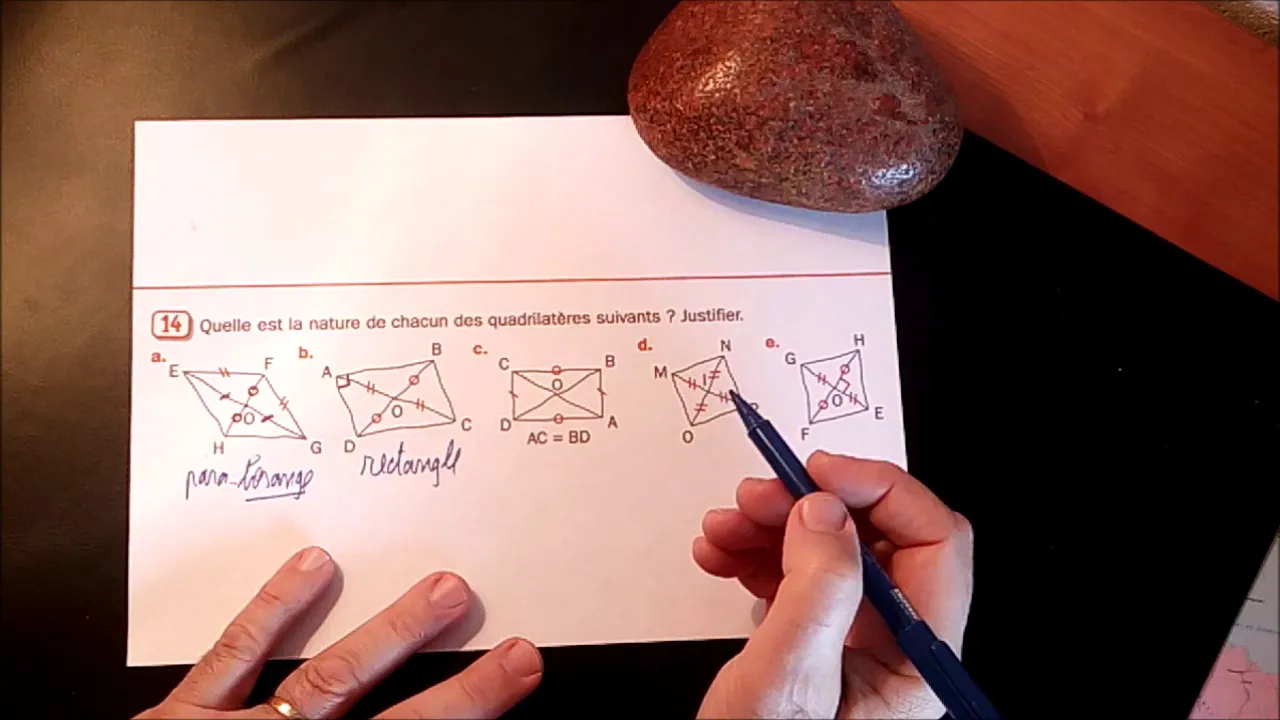 14 Quelle est la nature de chacun des quadrilatères suivants ? Justifier.
a. b. c. d. e.
E F H G O
A B C D O
C B D A O
M N O I
G H E F O
AC = BD
para- losange
rectangle